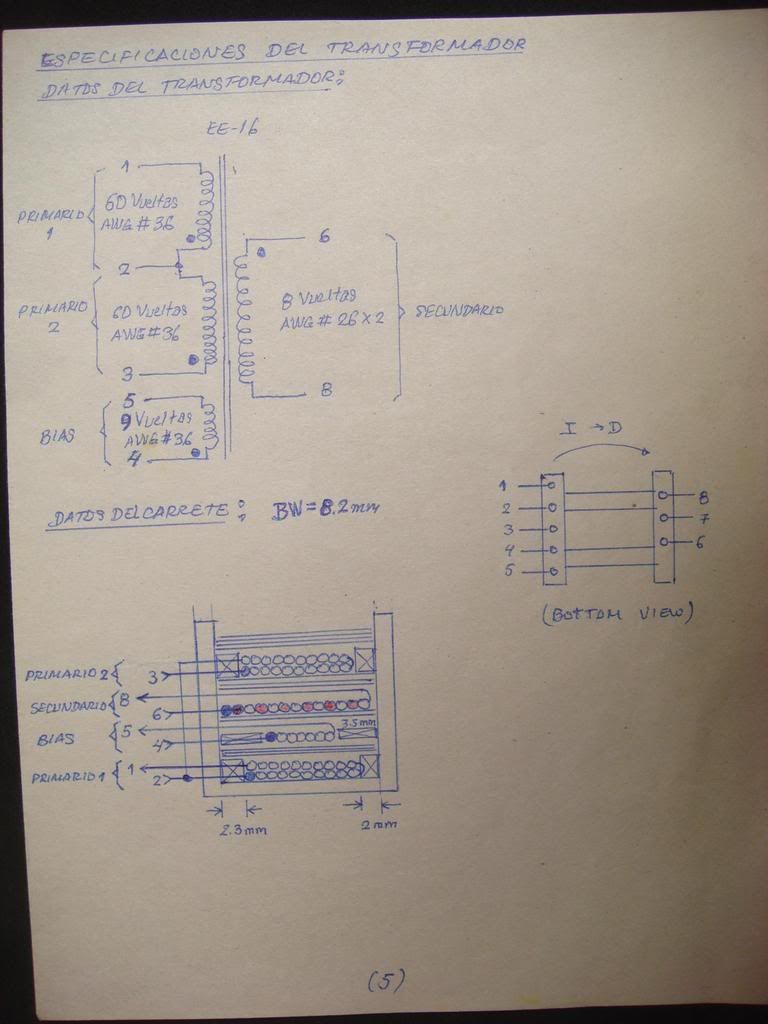 ESPECIFICACIONES DEL TRANSFORMADOR
DATOS DEL TRANSFORMADOR:
EE-16
1
PRIMARIO 1
60 Vueltas
AWG # 36
2
PRIMARIO 2
60 Vueltas
AWG # 36
3
5
BIAS
9 Vueltas
AWG # 36
4
6
8 Vueltas
AWG # 26 x 2
SECUNDARIO
8
I → D
1
2
3
4
5
8
7
6
(BOTTOM VIEW)
DATOS DEL CARRETE: BW = 8.2mm
PRIMARIO 2 3
SECUNDARIO 8
6
BIAS 5
4
3.5mm
PRIMARIO 1 1
2
2.3mm
2mm
(5)